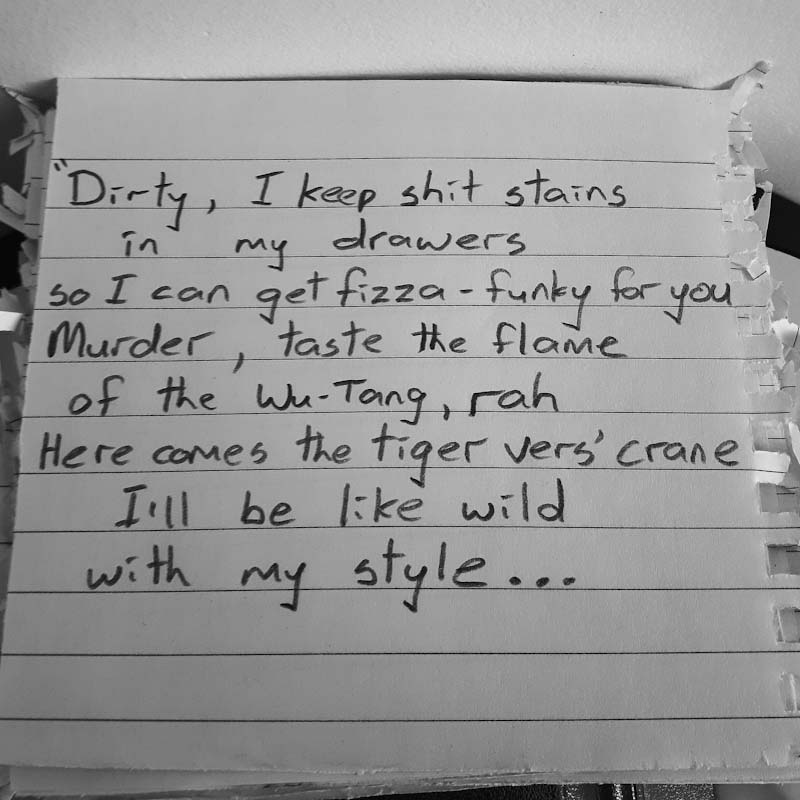 "Dirty, I keep shit stains
in my drawers
so I can get fizza-funky for you
Murder, taste the flame
of the Wu-Tang, rah
Here comes the tiger vers' crane
I'll be like wild
with my style...